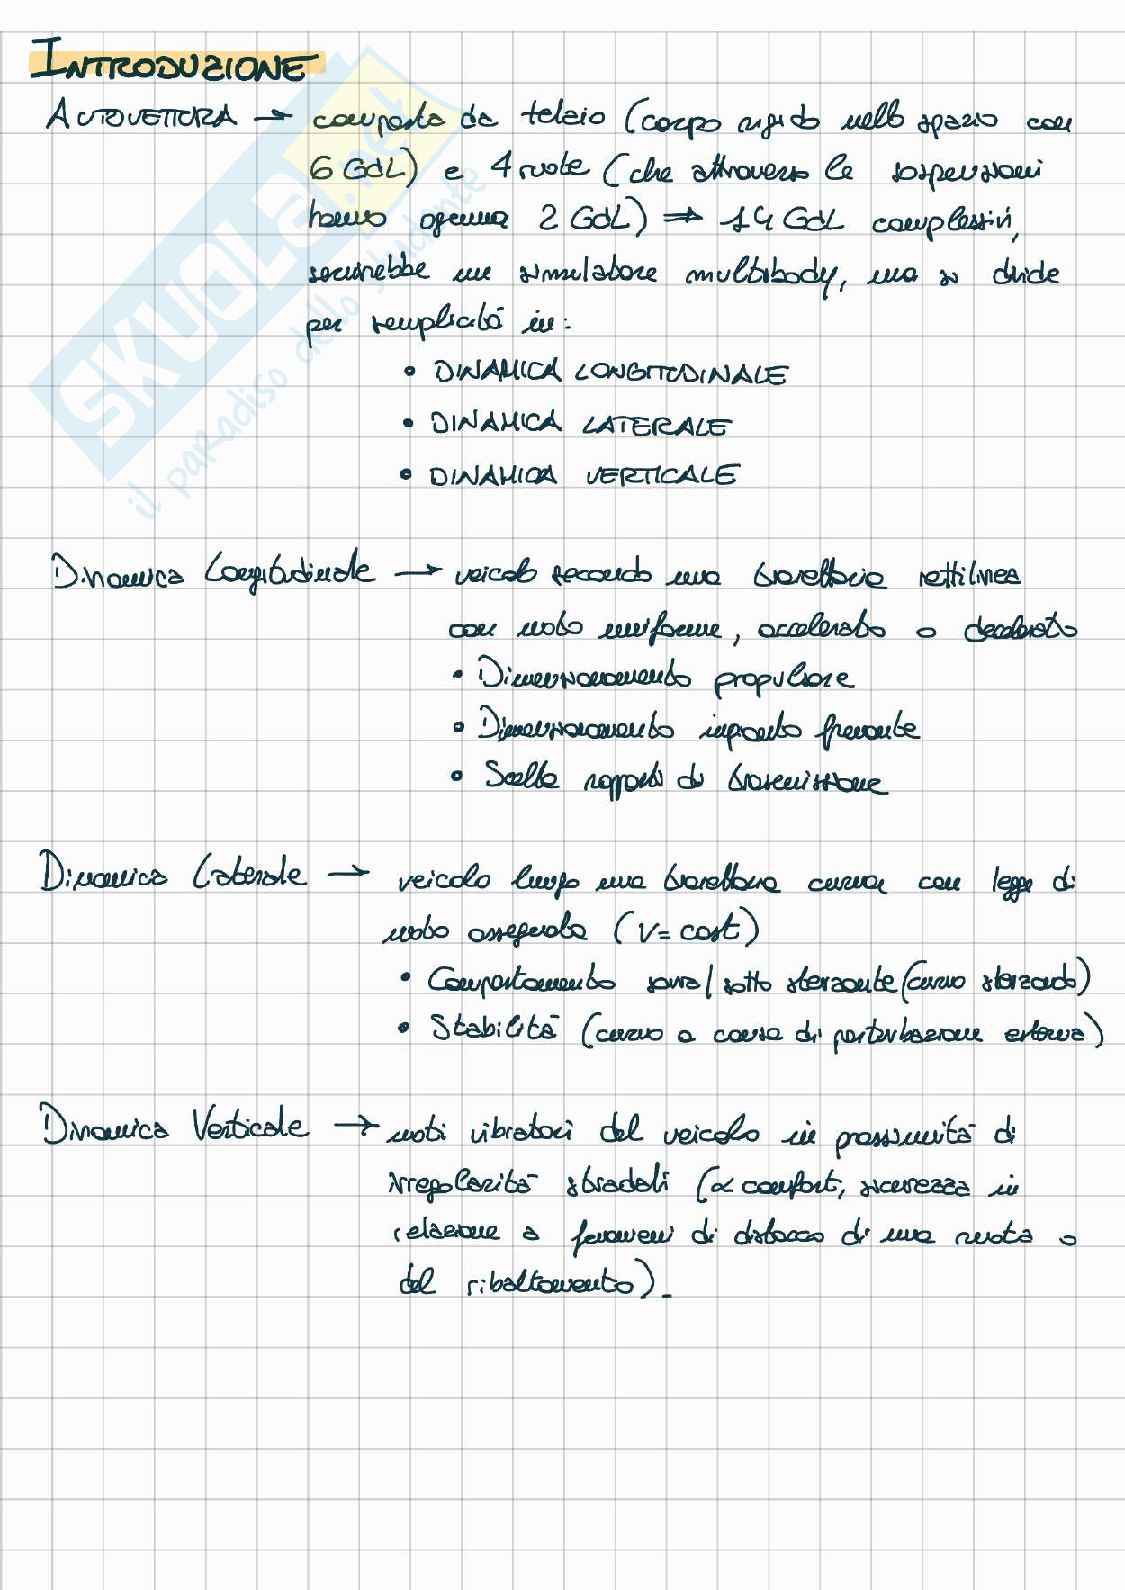 INTRODUZIONE
AUTOVETTURA → composta da telaio (corpo rigido nello spazio con
6 GdL) e 4 ruote (che attraverso le sospensioni
hanno ognuna 2 GdL) ⇒ 14 GdL complessivi,
servirebbe un simulatore multibody, ma si divide
per semplicità in:
• DINAMICA LONGITUDINALE
• DINAMICA LATERALE
• DINAMICA VERTICALE
Dinamica Longitudinale → veicolo secondo una traiettoria rettilinea
con moto uniforme, accelerato o decelerato
• Dimensionamento propulsore
• Dimensionamento impianto frenante
• Scelta rapporti di trasmissione
Dinamica Laterale → veicolo lungo una traiettoria curva con legge di
moto assegnata (V = cost)
• Comportamento sovra/sotto sterzante (curvo sterzando)
• Stabilità (curvo a causa di perturbazione esterna)
Dinamica Verticale → moti vibratori del veicolo in prossimità di
irregolarità stradali (∝ comfort, sicurezza in
relazione a fenomeni di distacco di una ruota o
del ribaltamento).
SKUOLA.net
il paradiso dello studente